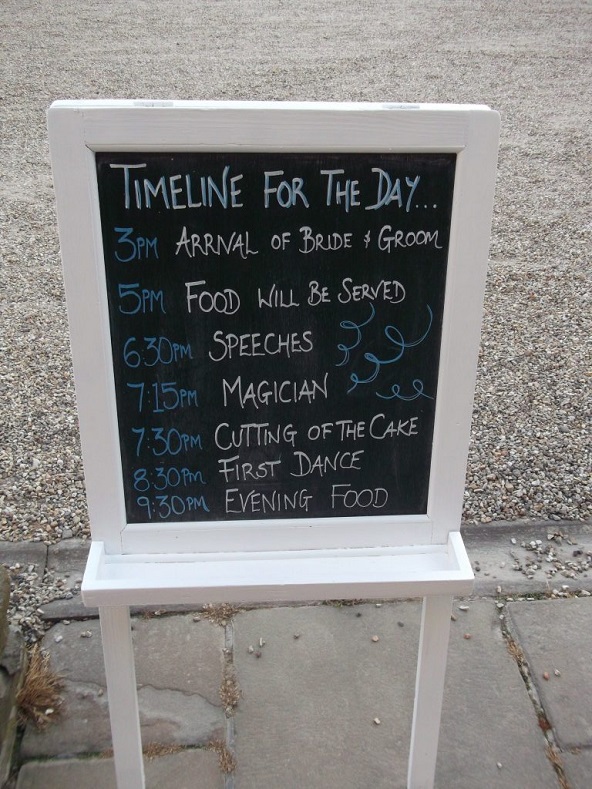 TIMELINE FOR THE DAY...
3PM ARRIVAL OF BRIDE & GROOM
5PM FOOD WILL BE SERVED
6:30PM SPEECHES
7:15PM MAGICIAN
7:30PM CUTTING OF THE CAKE
8:30PM FIRST DANCE
9:30PM EVENING FOOD